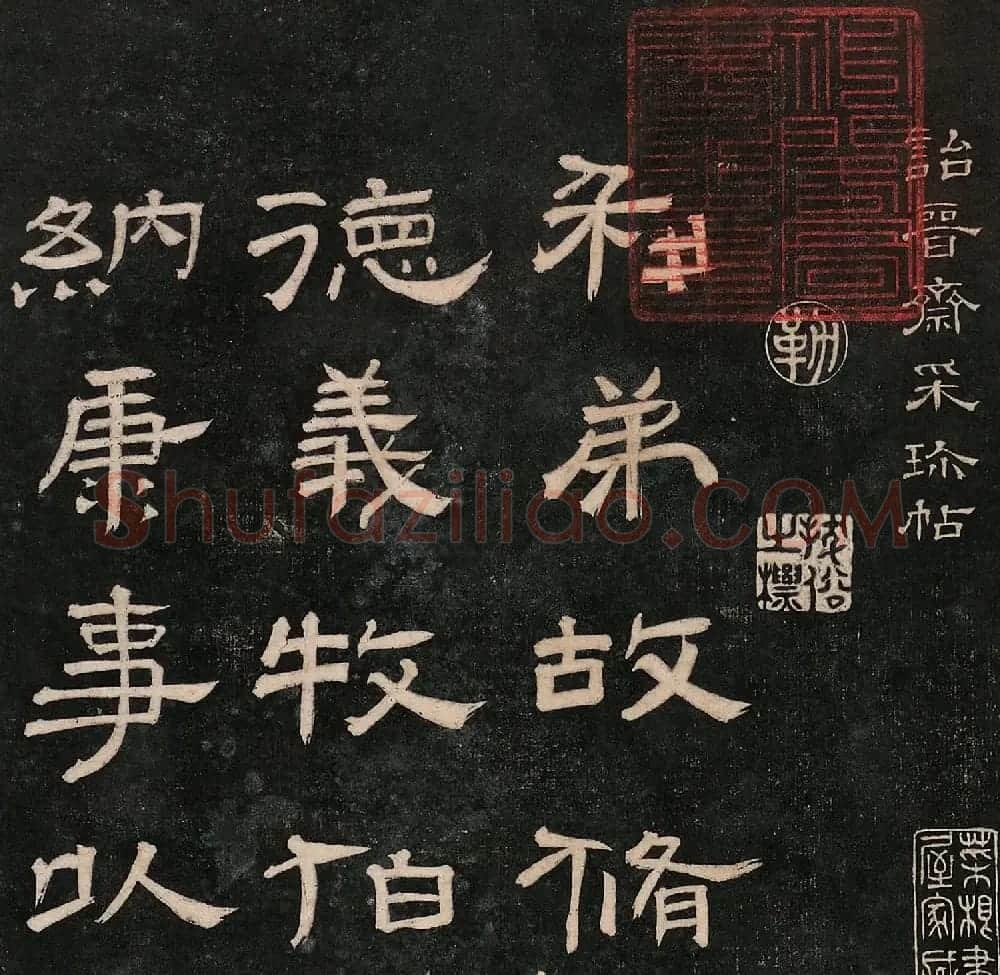 詒晉齋采珎帖
勒
弟故脩
德義牧伯
納康事以
Shufaziliao.COM